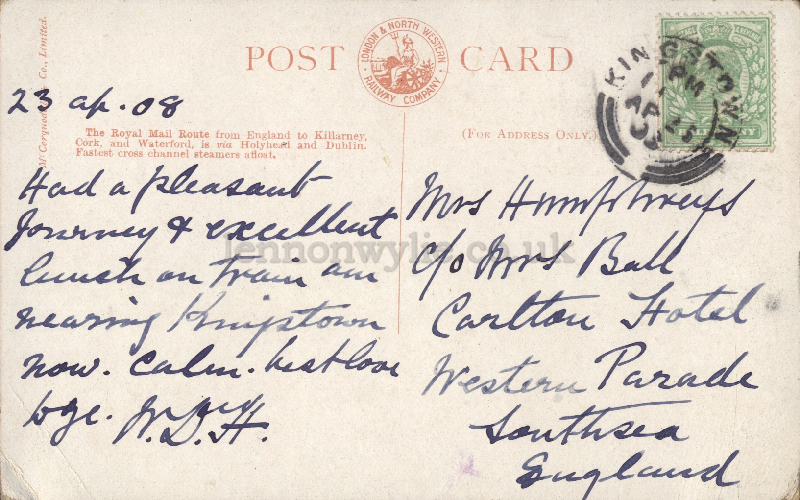 POST CARD
LONDON & NORTH WESTERN
RAILWAY COMPANY
McCorquodale & Co., Limited.
KINGSTOWN
PM
AP 25
08
23 ap. 08
The Royal Mail Route from England to Killarney,
Cork, and Waterford, is via Holyhead and Dublin.
Fastest cross channel steamers afloat.
(FOR ADDRESS ONLY.)
Had a pleasant
Journey & excellent
lunch on train am
nearing Kingstown
now. Calm. best love
W.D.H.
Mrs Humphreys
c/o Mrs Ball
Carlton Hotel
Western Parade
Southsea
England
lennonwylie.co.uk